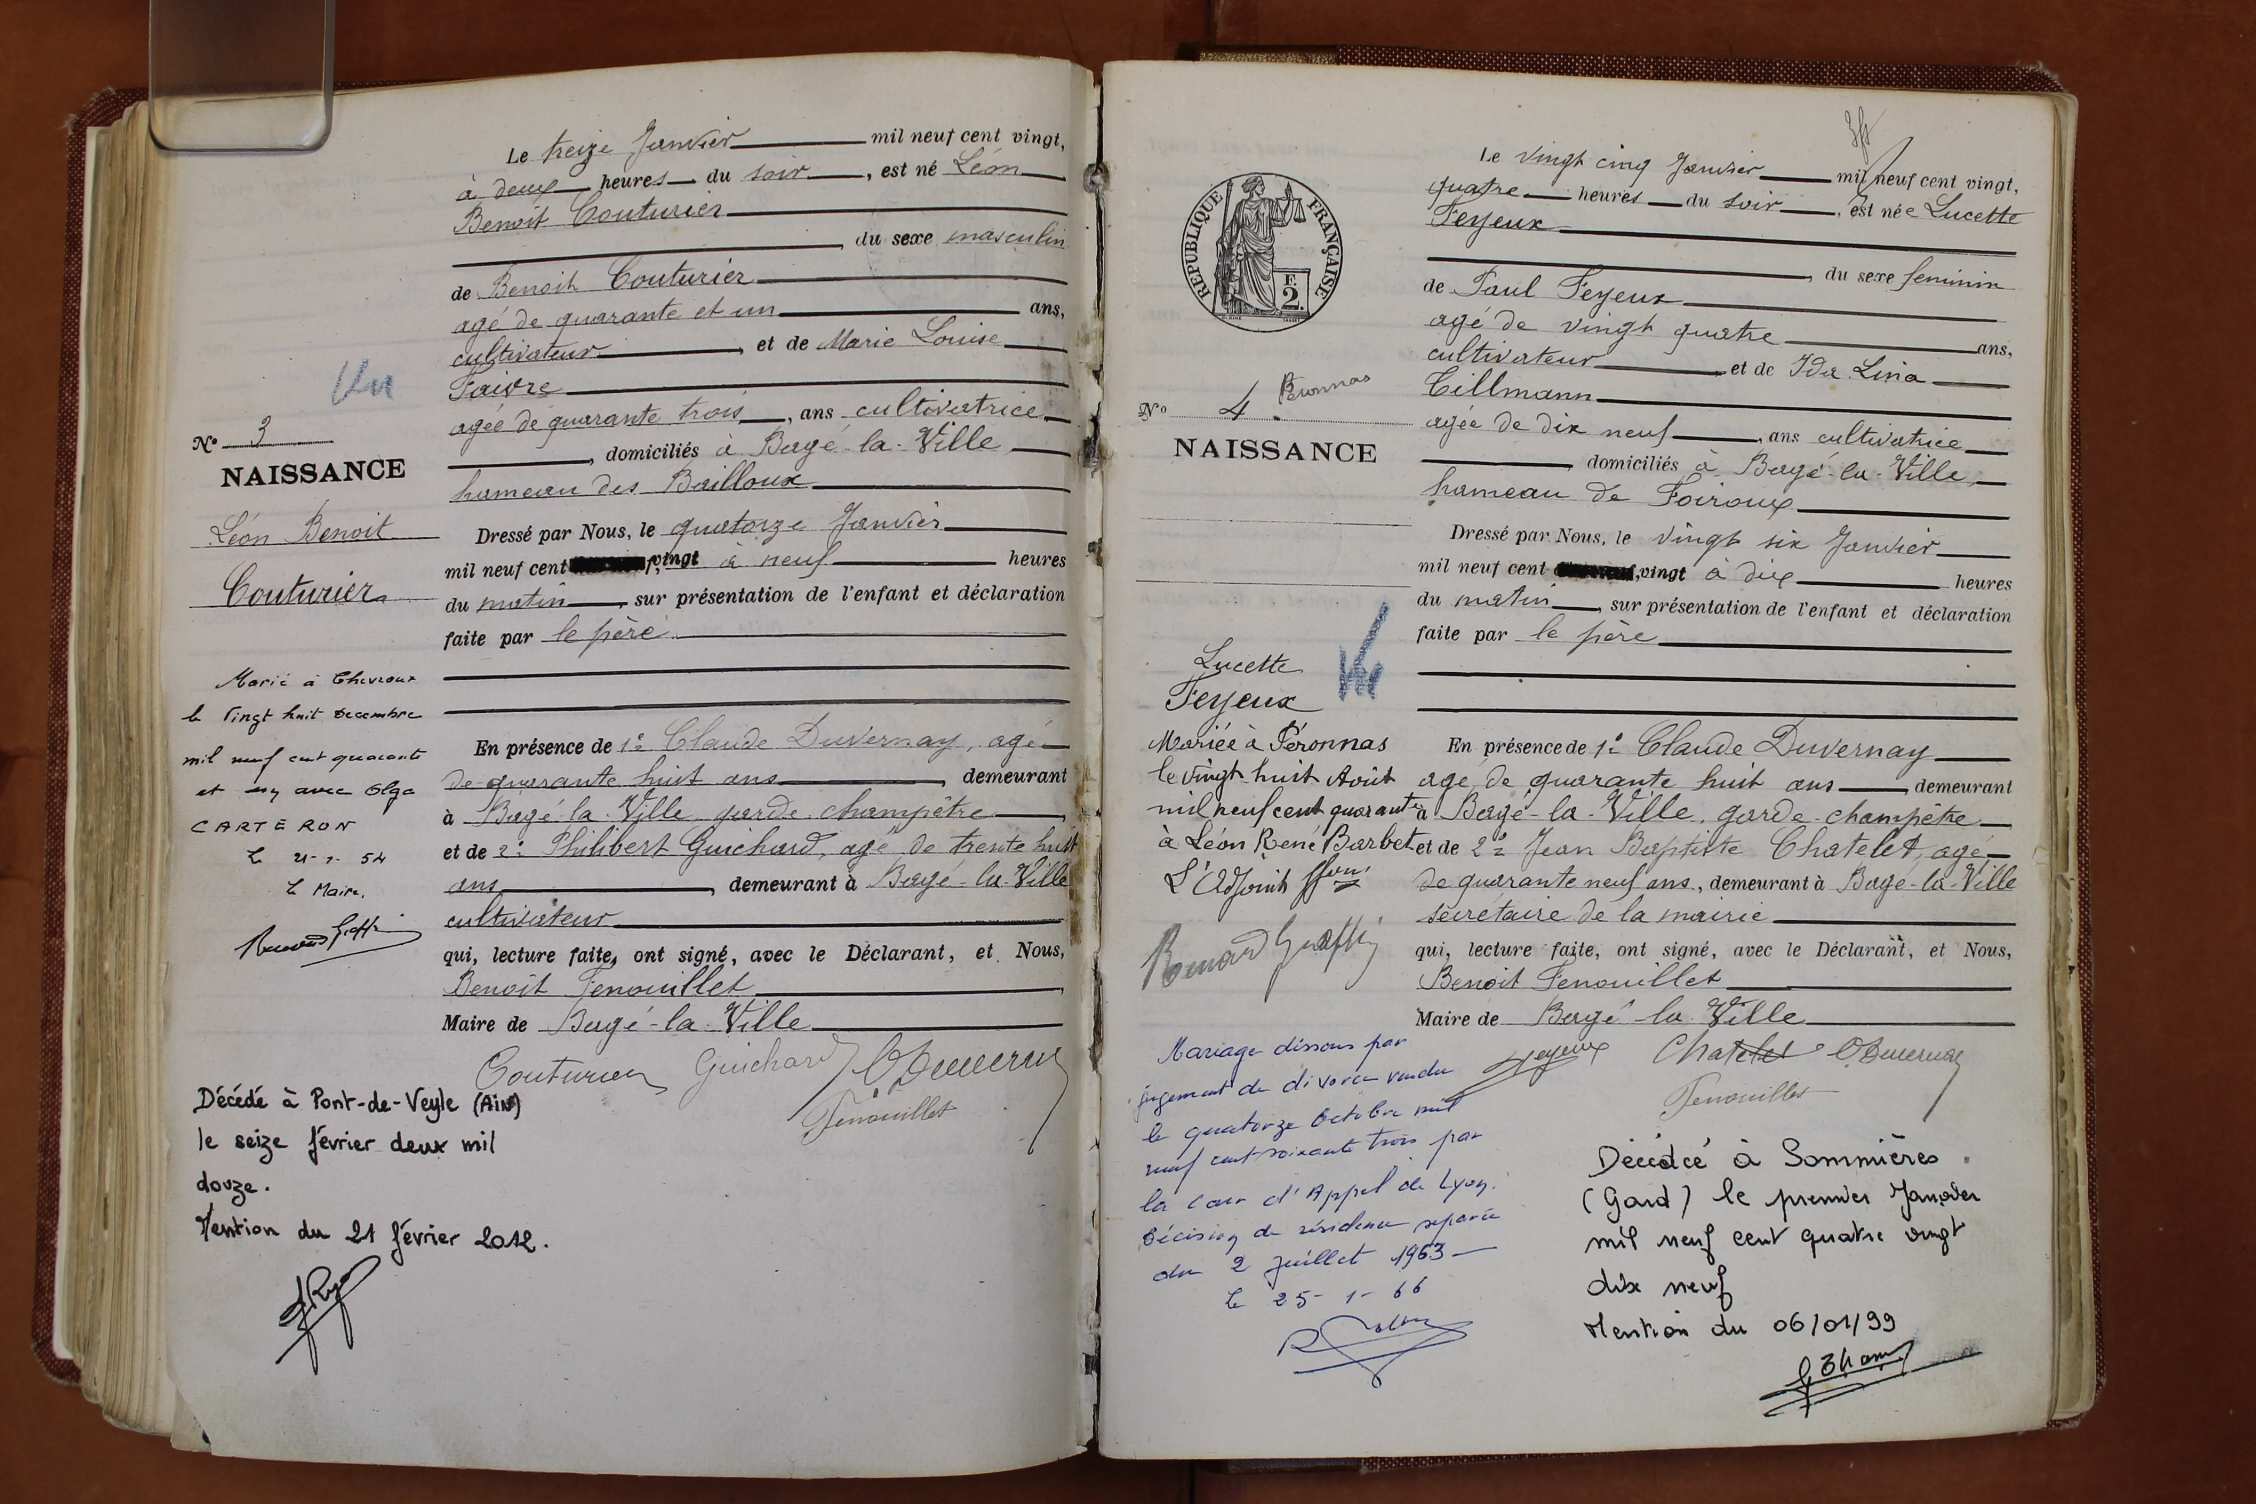 Le treize Janvier mil neuf cent vingt,
à deux heures du soir, est né Léon
Benoit Couturier
du sexe masculin
de Benoit Couturier
agé de quarante et un ans,
cultivateur, et de Marie Louise
Faivre
agée de quarante trois, ans cultivatrice
, domiciliés à Bagé-la-Ville
hameau des Bailloux
Dressé par Nous, le quatorze Janvier
mil neuf cent vingt à neuf heures
du matin, sur présentation de l'enfant et déclaration
faite par le père
En présence de 1º Claude Duvernay, agé
de quarante huit ans, demeurant
à Bagé-la-Ville garde-champêtre
et de 2º Philibert Guichard, agé de trente huit
ans, demeurant à Bagé-la-Ville
cultivateur
qui, lecture faite, ont signé, avec le Déclarant, et Nous,
Benoit Fenouillet
Maire de Bagé-la-Ville
Couturier Guichard C Duverny
Fenouillet
Vu
Nº 3
NAISSANCE
Léon Benoit
Couturier
Marié à Chevroux
le vingt huit decembre
mil neuf cent quarante
et un avec Olga
CARTERON
Le Maire.
Décédé à Pont-de-Veyle (Ain)
le seize février deux mil
douze.
Mention du 21 février 2012.
Le vingt cinq Janvier mil neuf cent vingt,
quatre heures du soir, est née Lucette
Feyeux
, du sexe feminin
de Paul Feyeux
agé de vingt quatre ans,
cultivateur et de Ida Lina
Tillmann
agée de dix neuf, ans cultivatrice
domiciliés à Bagé-la-Ville,
hameau de Foiroux
Dressé par Nous, le vingt six Janvier
mil neuf cent vingt à dix heures
du matin, sur présentation de l'enfant et déclaration
faite par le père
En présence de 1º Claude Duvernay
agé de quarante huit ans, demeurant
à Bagé-la-Ville, garde-champêtre
et de 2º Jean Baptiste Chatelet, agé
de quarante neuf ans, demeurant à Bagé-la-Ville
secrétaire de la mairie
qui, lecture faite, ont signé, avec le Déclarant, et Nous,
Benoit Fenouillet
Maire de Bagé-la-Ville
Feyeux Chatelet C Duvernay
Fenouillet
RÉPUBLIQUE FRANÇAISE
F. 2.
Nº 4 Péronnas
NAISSANCE
Vu
Lucette
Feyeux
Mariée à Péronnas
le vingt-huit Août
mil neuf cent quarante
à Léon René Barbet
L'Adjoint
Mariage dissous par
jugement de divorce rendu
le quatorze Octobre mil
neuf cent soixante trois par
la Cour d'Appel de Lyon.
Décision de résidence séparée
du 2 juillet 1963
le 25-1-66
Décédé à Sommières
(Gard) le premier Janvier
mil neuf cent quatre vingt
dix neuf
Mention du 06/01/99